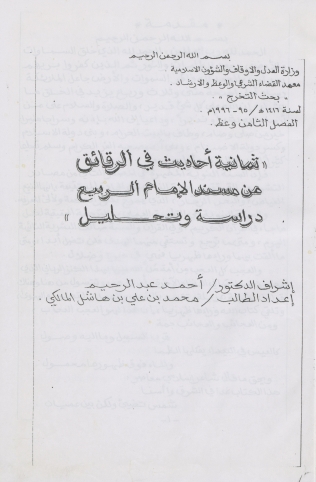 بسم الله الرحمن الرحيم
وزارة العدل والاوقاف والشؤون الاسلامية.
معهد القضاء الشرعي والوعظ والارشاد.
" بحث التخرج "
لسنة ١٤١٦هـ/٩٥-١٩٩٦م.
الفصل الثامن وعظ.
« ثمانية أحاديث في الرقائق
من مسند الإمام الربيع
دراسة وتحليل »
إشراف الدكتور/ أحمد عبد الرحيم
إعداد الطالب/ محمد بن علي بن هاشل المالكي.